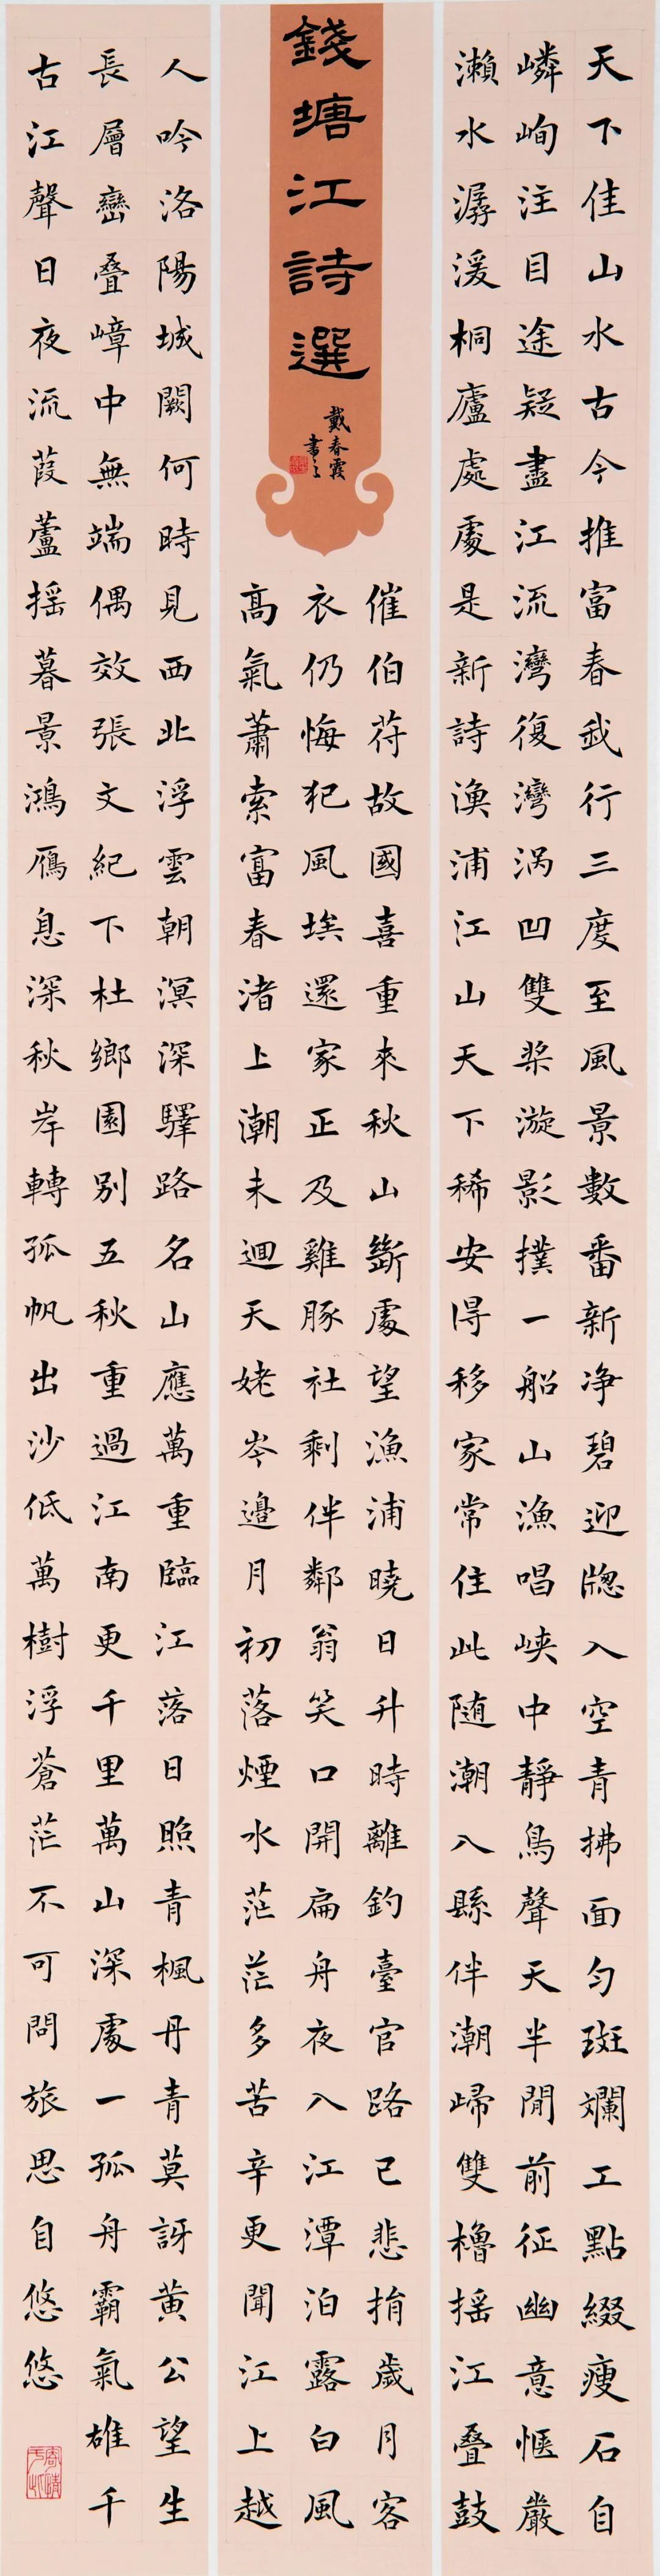 天下佳山水古今推富春我行三度至風景數番新净碧迎牕入空青拂面勻斑斕工點綴瘦石自
嶙峋注目途疑盡江流灣復灣渦凹雙槳漩影撲一船山漁唱峽中靜鳥聲天半閒前征幽意愜嚴
瀨水潺湲桐廬處處是新詩漁浦江山天下稀安得移家常住此随潮入縣伴潮歸雙櫓摇江叠鼓
錢塘江詩選
戴春霞
書之
催伯苻故國喜重來秋山斷處望漁浦曉日升時離釣臺官路已悲捐歲月客
衣仍悔犯風埃還家正及雞豚社剩伴鄰翁笑口開扁舟夜入江潭泊露白風
高氣蕭索富春渚上潮未迴天姥岑邊月初落煙水茫茫多苦辛更聞江上越
人吟洛陽城闕何時見西北浮雲朝溟深驛路名山應萬重臨江落日照青楓丹青莫訝黄公望生
長層巒叠嶂中無端偶效張文紀下杜鄉園别五秋重過江南更千里萬山深處一孤舟霸氣雄千
古江聲日夜流葭蘆摇暮景鴻鴈息深秋岸轉孤帆出沙低萬樹浮蒼茫不可問旅思自悠悠